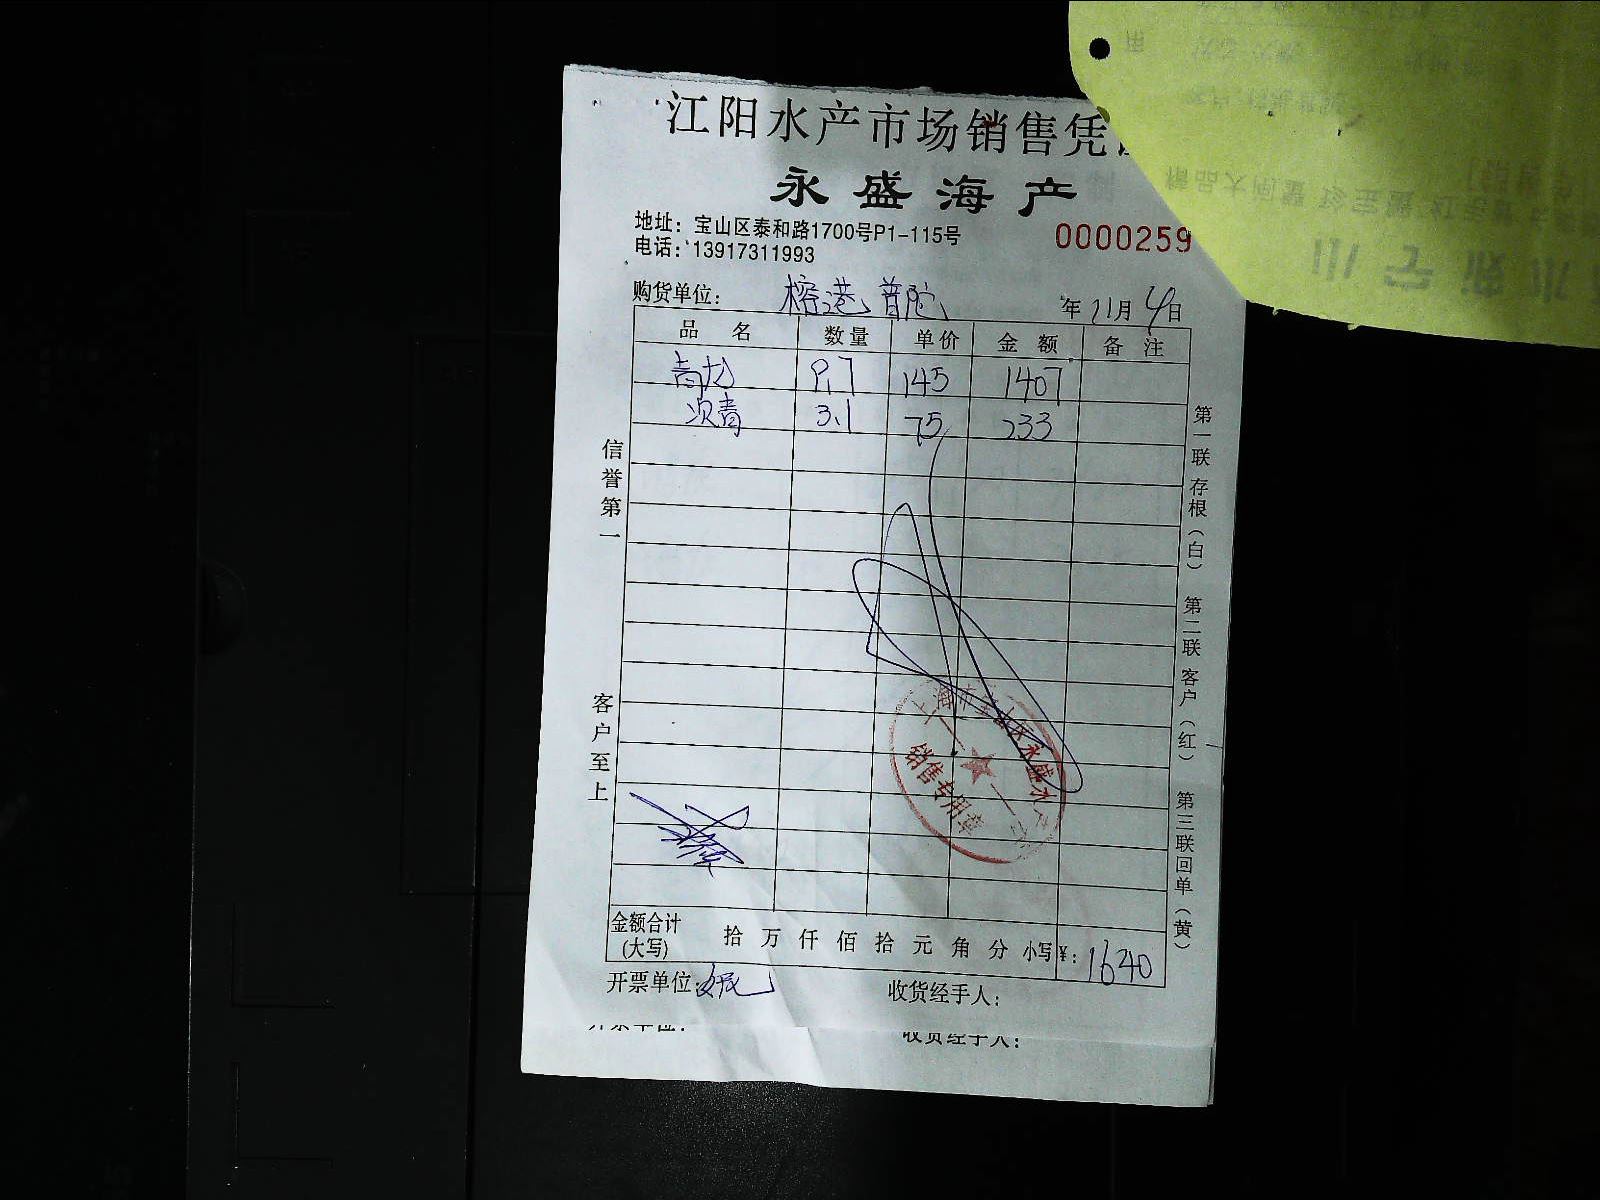 江阳水产市场销售凭
永盛海产
地址：宝山区泰和路1700号P1-115号
电话：13917311993
0000259
购货单位：榕港 普陀
年 11月 4日
品 名 数量 单价 金 额 备 注
青龙 9.7 145 1407
次青 3.1 75 233
信誉第一
客户至上
第一联 存根（白） 第二联 客户（红） 第三联 回单（黄）
海市宝山区永盛水产
销售专用章
金额合计（大写） 拾 万 仟 佰 拾 元 角 分 小写￥：1640
开票单位： 收货经手人：
开票单位： 收货经手人：